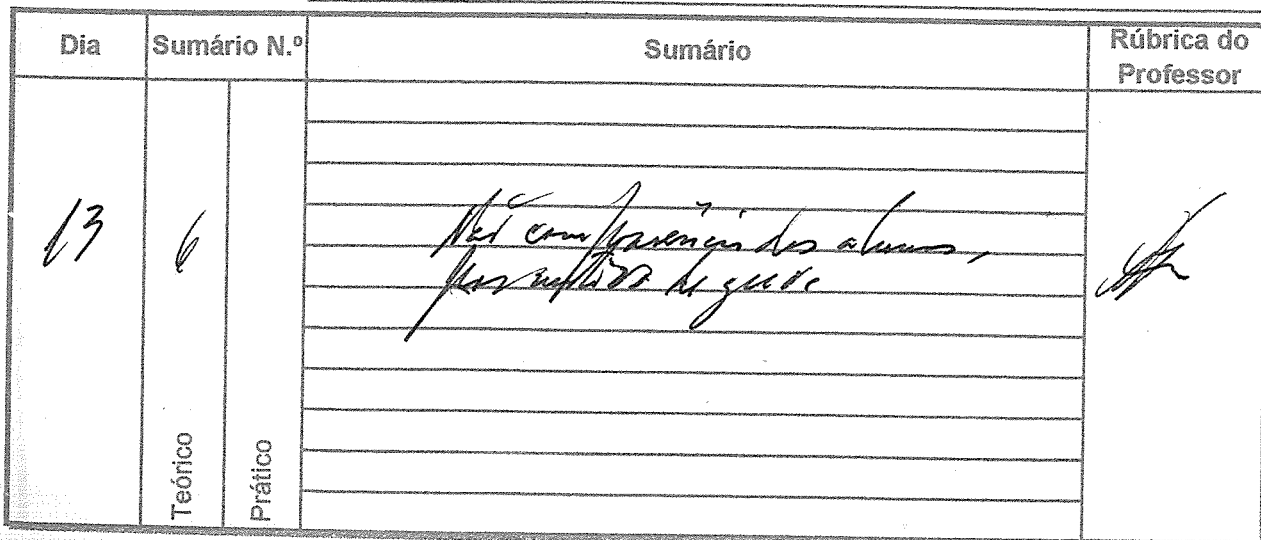 Dia Sumário N.º Sumário Rúbrica do Professor
13 6
Não comparência dos alunos,
por motivo de greve
Teórico Prático